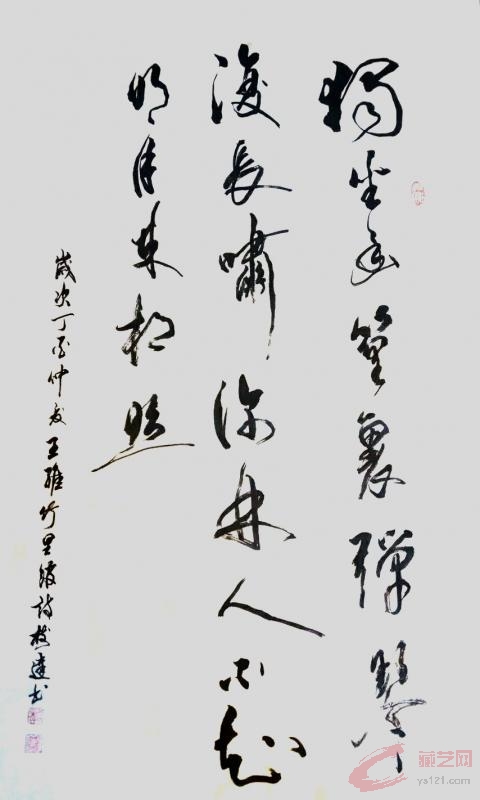 獨坐幽篁裏彈琴
復長嘯深林人不知
明月来相照
歲次丁酉仲夏王維竹里館詩書
藏艺网
ys121.com